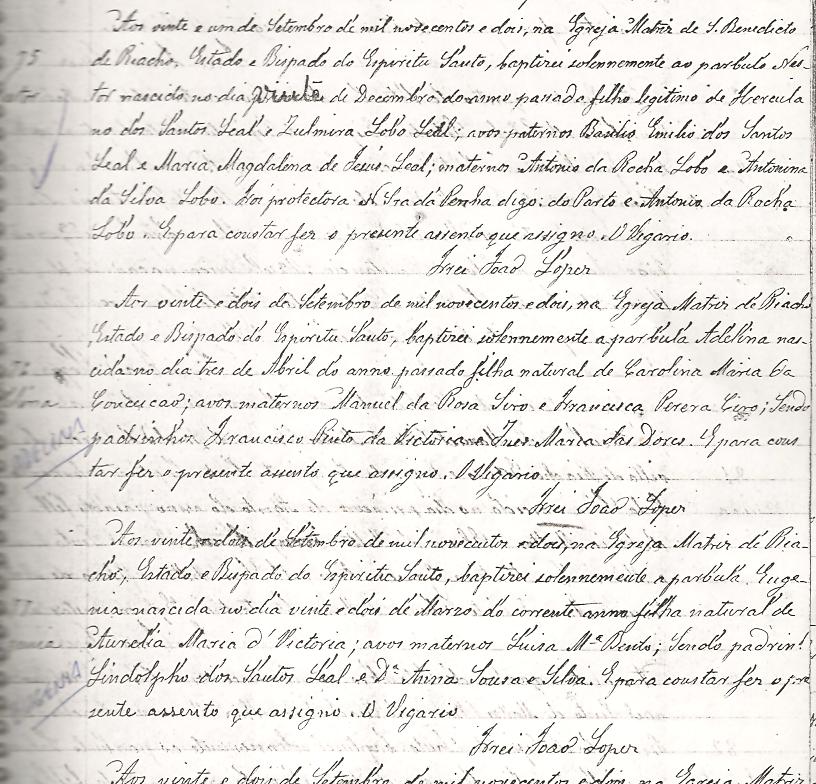 Aos vinte e um de Setembro de mil novecentos e dois, na Egreja Matriz de S. Benedicto
75
de Riacho, Estado e Bispado do Espiritu Santo, baptizei solennemente ao parbulo Nes-
tor nascido no dia vinte de Decembro do anno passado filho legitimo de Hercula
no dos Santos Leal e Zulmira Lobo Leal; avos paternos Basilio Emilio dos Santos
Leal e Maria Magdalena de Jesus Leal; maternos Antonio da Rocha Lobo e Antonina
da Silva Lobo. Foi protectora N. Sra da Penha digo: do Parto e Antonio da Rocha
Lobo. E para constar fez o presente assento que assigno. O Vigario.
Frei Joao Lopez
Aos vinte e dois de Setembro de mil novecentos e dois, na Egreja Matriz de Riacho
Estado e Bispado do Espiritu Santo, baptizei solennemente a parbula Adelina nas-
cida no dia tres de Abril do anno passado filha natural de Carolina Maria da
Conceicao; avos maternos Manuel da Rosa Siro e Francisca Perera Ciro; Sendo
ADELINA
padrinhos Francisco Pinto da Victoria e Ines Maria das Dores. E para cons
tar fez o presente assento que assigno. O Vigario
Frei Joao Lopez
Aos vinte e dois de Setembro de mil novecentos e dois, na Egreja Matriz de Ria-
cho, Estado e Bispado do Espiritu Santo, baptizei solennemente a parbula Euge-
77
nia nascida no dia vinte e dois de Marzo do corrente anno filha natural de
Aurelia Maria d' Victoria; avos maternos Luisa Mª Bento; Sendo padrin!
EUGENIA
Lindolpho dos Santos Leal e Dª Anna Sousa e Silva. E para constar fez o pre
sente assento que assigno. O Vigario
Frei Joao Lopez
Aos vinte e dois de Setembro de mil novecentos e dois na Egreja Matriz